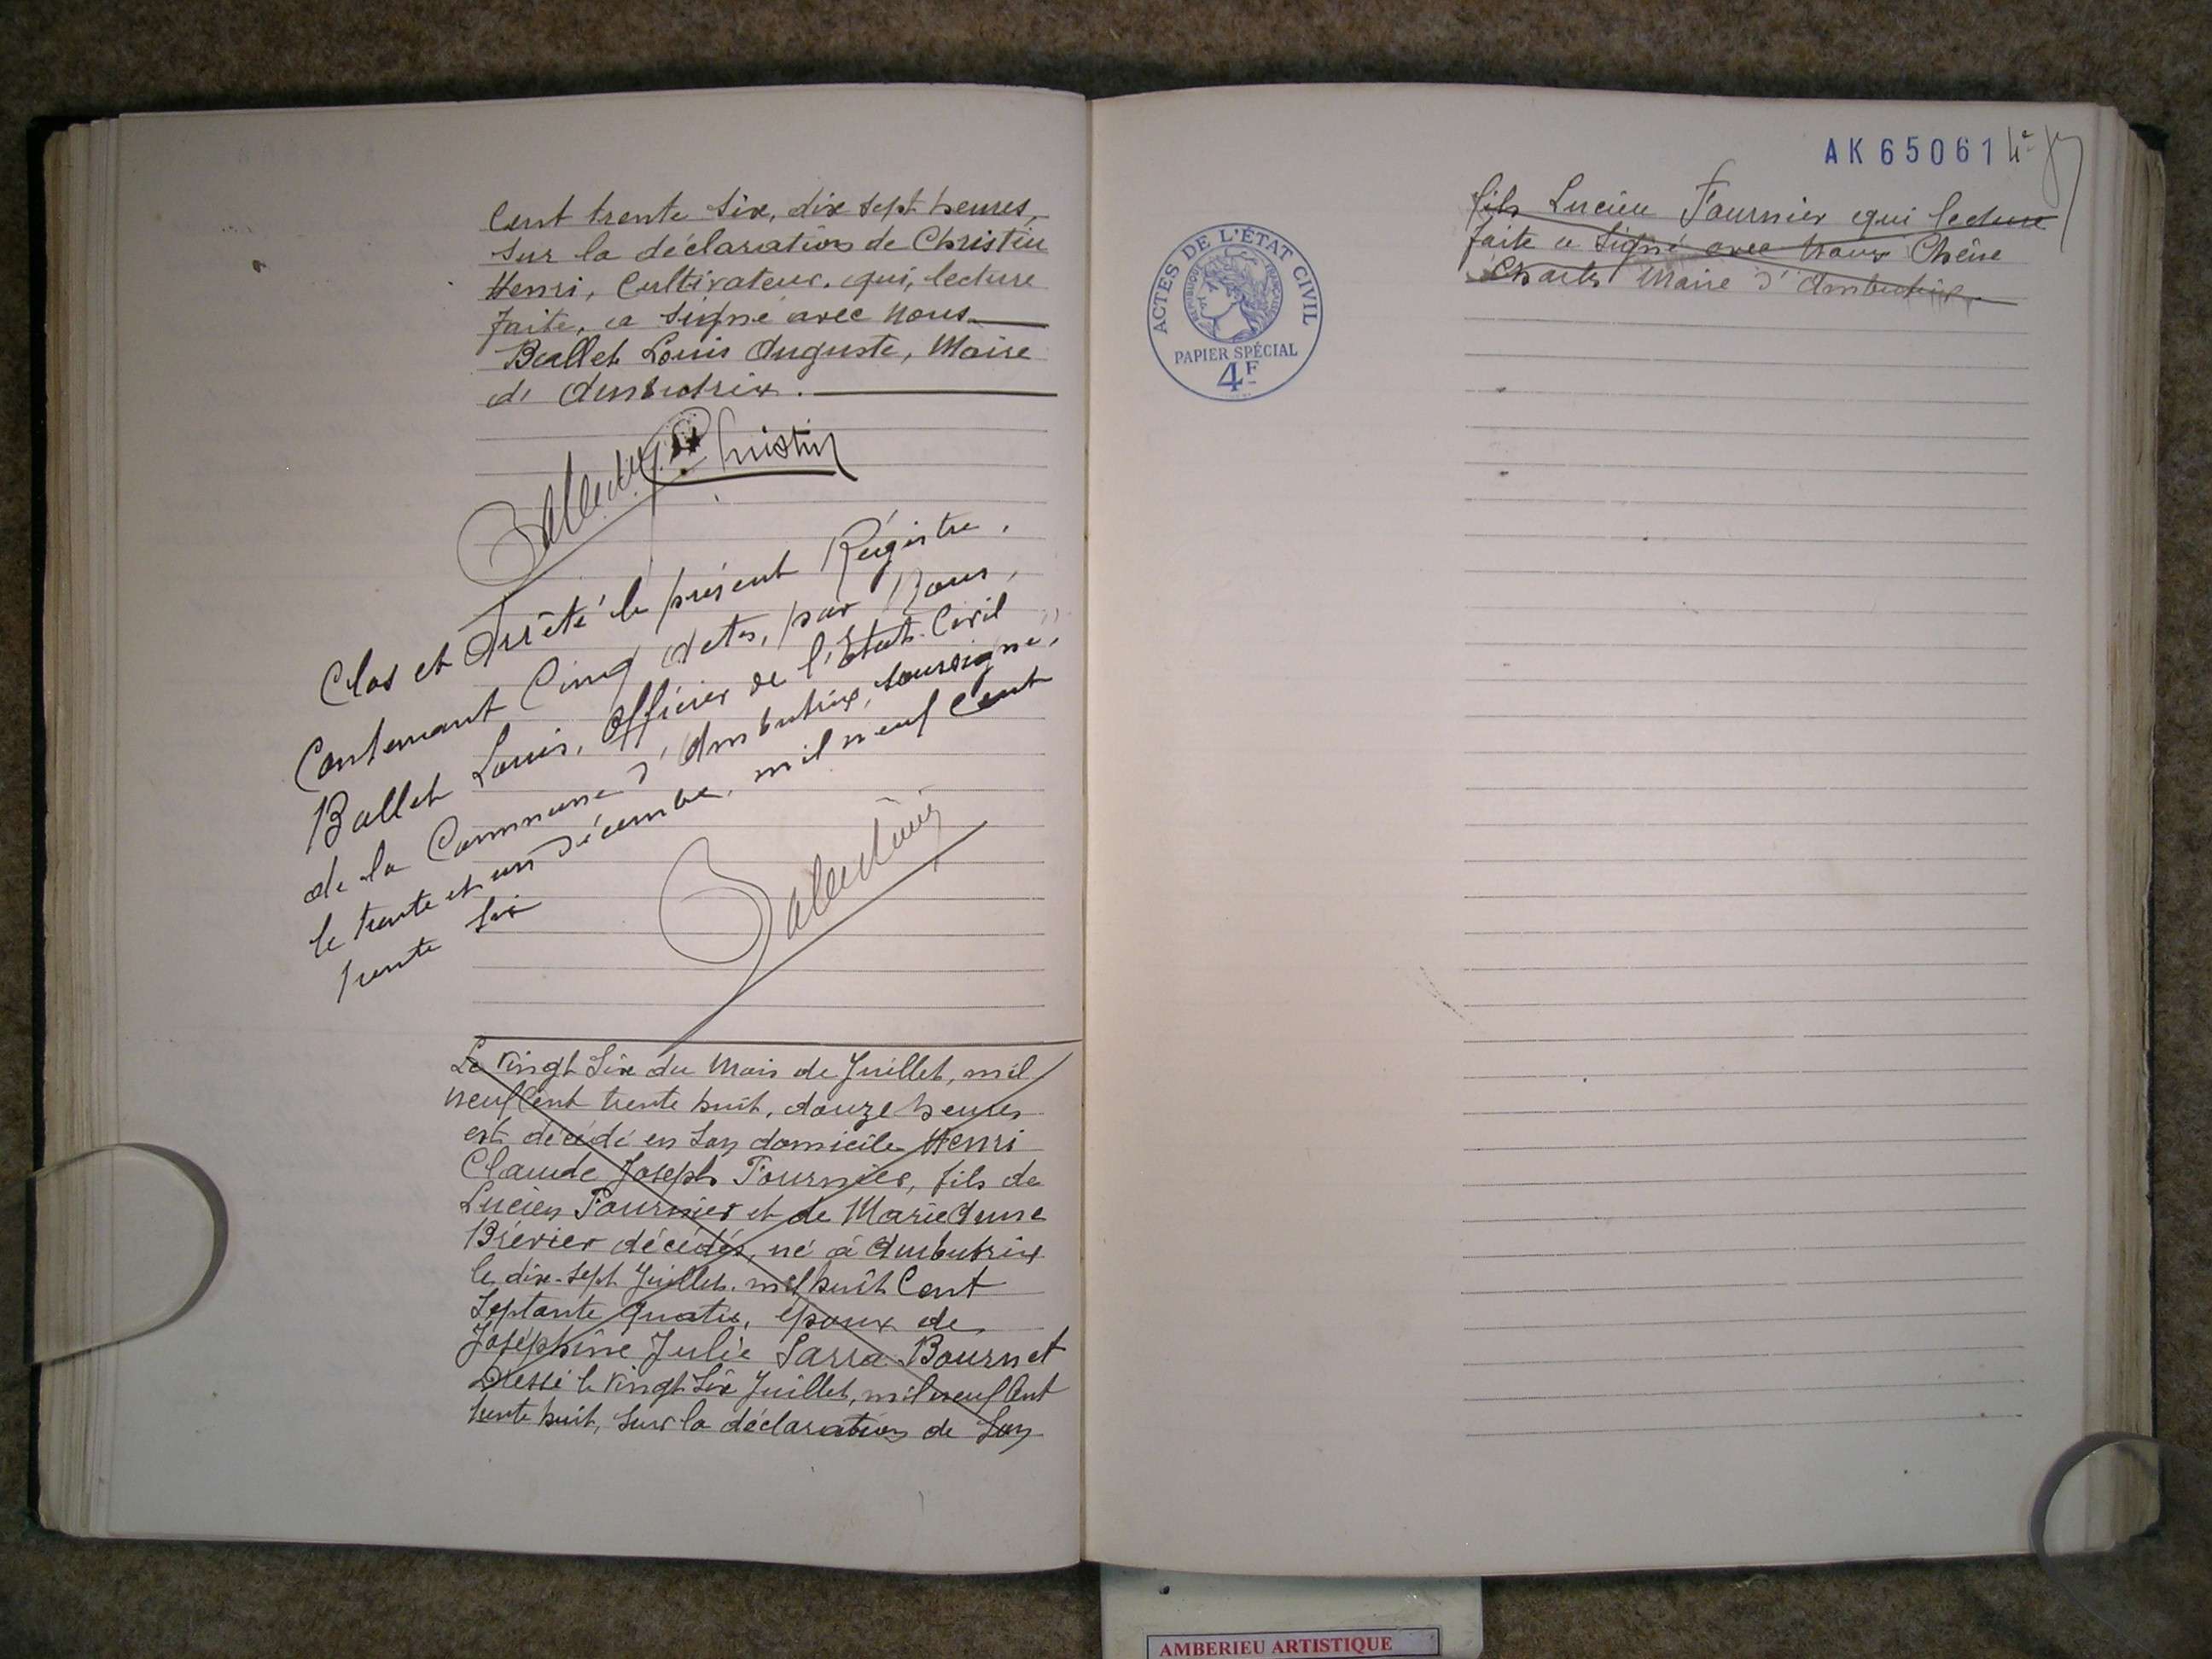 Cent trente six, dix sept heures,
sur la déclaration de Christin
Henri, Cultivateur, qui, lecture
faite, a signé avec Nous
Ballet Louis Auguste, Maire
d'Ambutrix.
Christin
Clos et Arrêté le présent Régistre,
Contenant Cinq Actes, par Nous,
Ballet Louis, Officier de l'Etat-Civil
de la Commune d'Ambutrix, soussigné,
le trente et un décembre, mil neuf Cent
trente six
Ballet Louis
Le vingt six du Mois de Juillet, mil
neuf Cent trente huit, douze heures
est décédé en son domicile Henri
Claude Joseph Fournier, fils de
Lucien Fournier et de Marie Anne
Brévier décédés, né à Ambutrix
le dix-sept Juillet, mil huit Cent
Septante quatre, époux de
Joséphine Julie Sarra-Bournet
Dressé le vingt six Juillet, mil neuf Cent
trente huit, sur la déclaration de son
AK65061
fils Lucien Fournier qui lecture
faite a signé avec Nous Chêne
Charles Maire d'Ambutrix
ACTES DE L'ÉTAT CIVIL
RÉPUBLIQUE FRANÇAISE
PAPIER SPÉCIAL
4F
AMBERIEU ARTISTIQUE